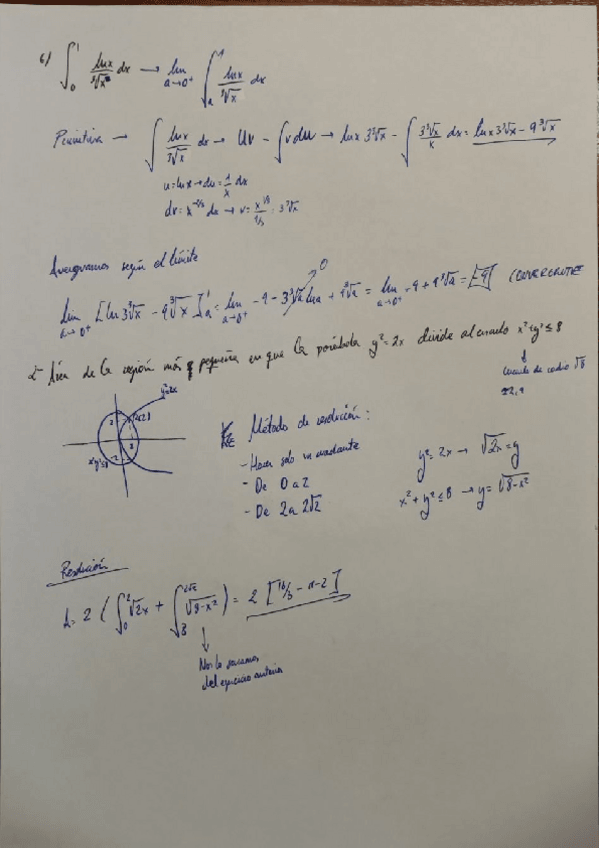 c) ∫₀¹ lnx/³√x² dx → lim a→0⁺ ∫ₐ¹ lnx/³√x dx
Primitiva → ∫ lnx/³√x dx → uv - ∫vdu → lnx 3³√x - ∫ 3³√x/x dx = lnx 3³√x - 9³√x
u = lnx → du = 1/x dx
dv = x^(-2/3) dx → v = x^(1/3)/(1/3) = 3³√x
Averiguamos según el límite
lim a→0⁺ [ln 3³√x - 9³√x]ₐ¹ = lim a→0⁺ -9 - 3³√a lna + 9³√a = lim a→0⁺ -9 + 9³√a = [-9] CONVERGENTE
0
2- Área de la región más pequeña en que la parábola y²=2x divide al círculo x²+y²≤8
círculo de radio √8
y²=2x
x²+y²≤8
2
2
-2
Método de resolución:
- Hacer solo un cuadrante
- De 0 a 2
- De 2 a 2√2
y² = 2x → √2x = y
x²+y² ≤ 8 → y = √8-x²
Resolución
A = 2 ( ∫₀² √2x + ∫ √8-x² ) = 2 [16/3 - π - 2]
Nos lo sacamos
del ejercicio anterior